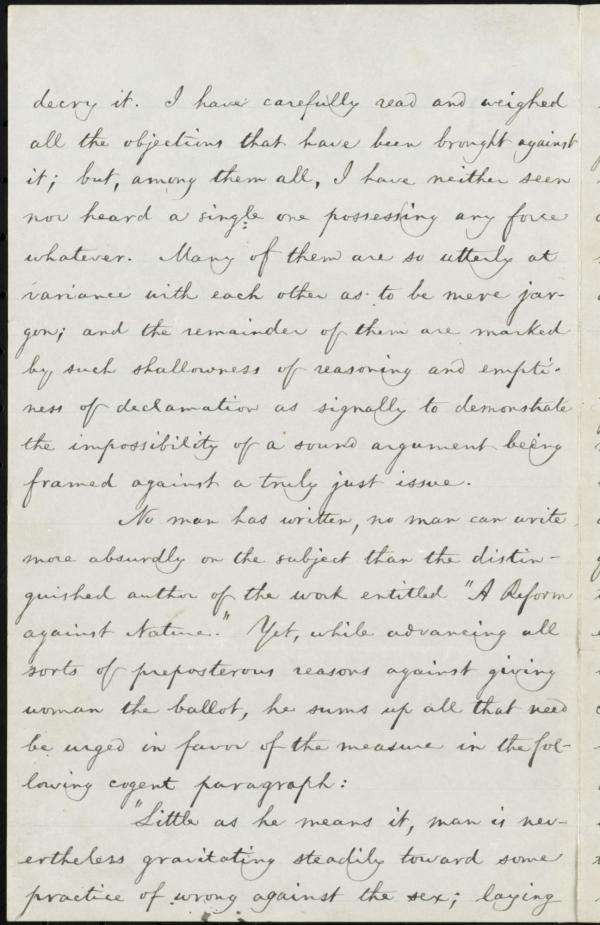 decry it. I have carefully read and weighed
all the objections that have been brought against
it; but, among them all, I have neither seen
nor heard a single one possessing any force
whatever. Many of them are so utterly at
variance with each other as to be mere jar-
gon; and the remainder of them are marked
by such shallowness of reasoning and empti-
ness of declamation as signally to demonstrate
the impossibility of a sound argument being
framed against a truly just issue.
No man has written, no man can write
more absurdly on the subject than the distin-
guished author of the work entitled "A Reform
against Nature." Yet, while advancing all
sorts of preposterous reasons against giving
woman the ballot, he sums up all that need
be urged in favor of the measure in the fol-
lowing cogent paragraph:
"Little as he means it, man is nev-
ertheless gravitating steadily toward some
practice of wrong against the sex; laying